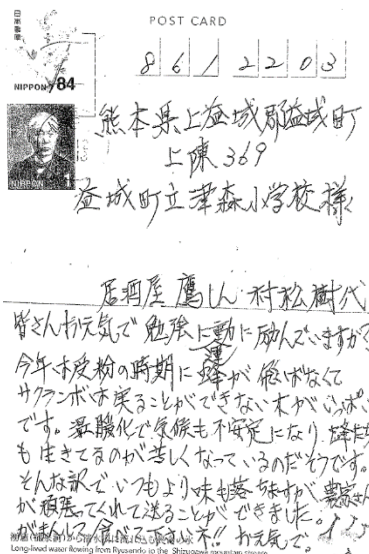 日本郵便
POST CARD
NIPPON 84
8 6 1 2 2 0 3
熊本県上益城郡益城町
上陳369
NIPPON 1
益城町立津森小学校様
居酒屋 鷹しん 村松樹代
皆さんお元気で勉強に運動に励んでいますか?
今年は受粉の時期に蜂が飛ばなくて
サクランボは実ることができない木がいっぱい
です。温暖化で気候も不安定になり、蜂たち
も生きてるのが苦しくなっているのだそうです。
そんな訳で、いつもより味も落ちますが、農家さん
が頑張ってくれて送ることができました。
がまんして食べて下さい。お元気で。
Long-lived water flowing from Ryusendo in the Shizugawa mountain stream